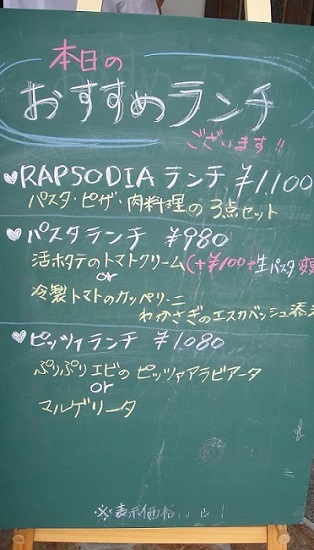 本日の
おすすめランチ
ございます!!
♥RAPSODIA ランチ ¥1,100
パスタ・ピザ・肉料理の3点セット
♥パスタランチ ¥980
活ホタテのトマトクリーム(+¥100で生パスタ変
or
冷製トマトのカッペリーニ
わかさぎのエスカベッシュ添え
♥ピッツァランチ ¥1080
ぷりぷりエビのピッツァアラビアータ
or
マルゲリータ
※表示価格